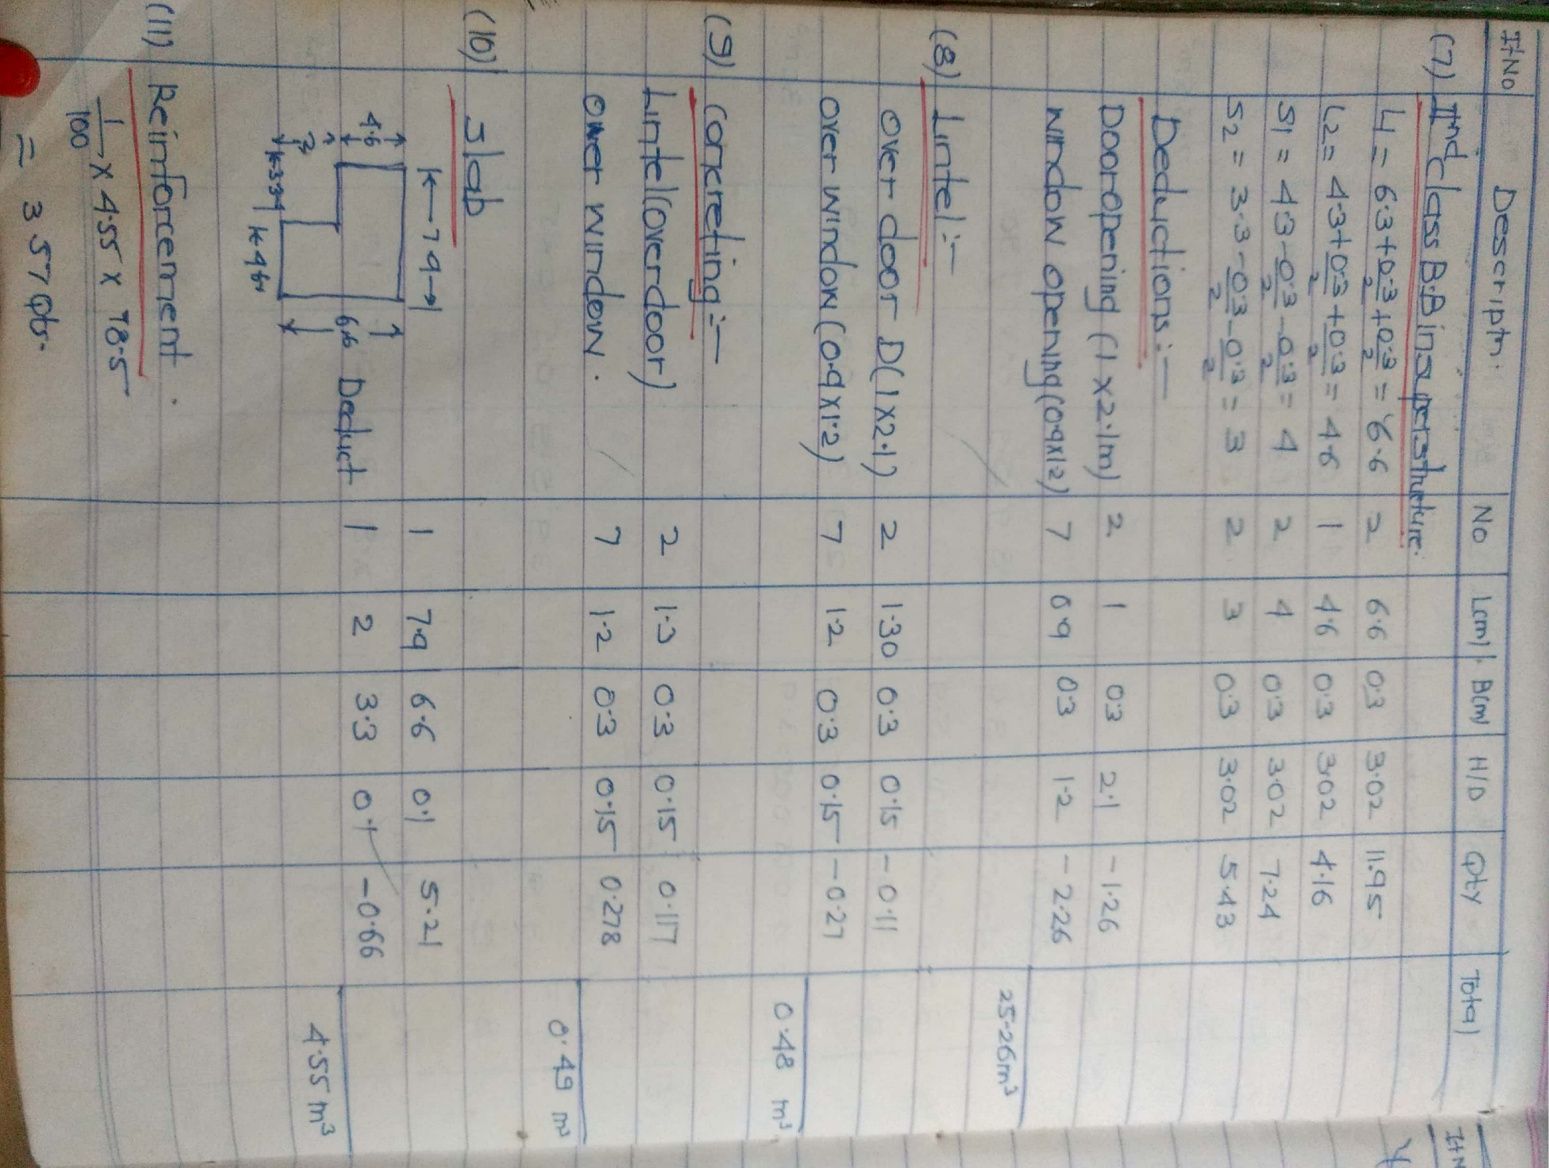 It No Descriptn. No L(m) B(m) H/D Qty Total
(7) IInd class B.B in superstructure.
L1 = 6.3+0.3/2+0.3/2 = 6.6 2 6.6 0.3 3.02 11.95
L2 = 4.3+0.3/2+0.3/2 = 4.6 1 4.6 0.3 3.02 4.16
S1 = 4.3-0.3/2-0.3/2 = 4 2 4 0.3 3.02 7.24
S2 = 3.3-0.3/2-0.3/2 = 3 2 3 0.3 3.02 5.43
Deductions:-
Door opening (1 x 2.1m) 2 1 0.3 2.1 -1.26
Window opening (0.9x1.2) 7 0.9 0.3 1.2 -2.26
25.26m³
(8) Lintel:-
Over door D(1x2.1) 2 1.30 0.3 0.15 -0.11
Over window (0.9x1.2) 7 1.2 0.3 0.15 -0.27
0.48 m³
(9) Concreting:-
Lintel (over door) 2 1.3 0.3 0.15 0.117
Over window. 7 1.2 0.3 0.15 0.278
0.49 m³
(10) Slab
7.9 1 7.9 6.6 0.1 5.21
4.6 6.6 Deduct 1 2 3.3 0.1 -0.66
2
3.3 4.6
4.55 m³
(11) Reinforcement.
1/100 x 4.55 x 78.5
= 3.57 qts.
It N